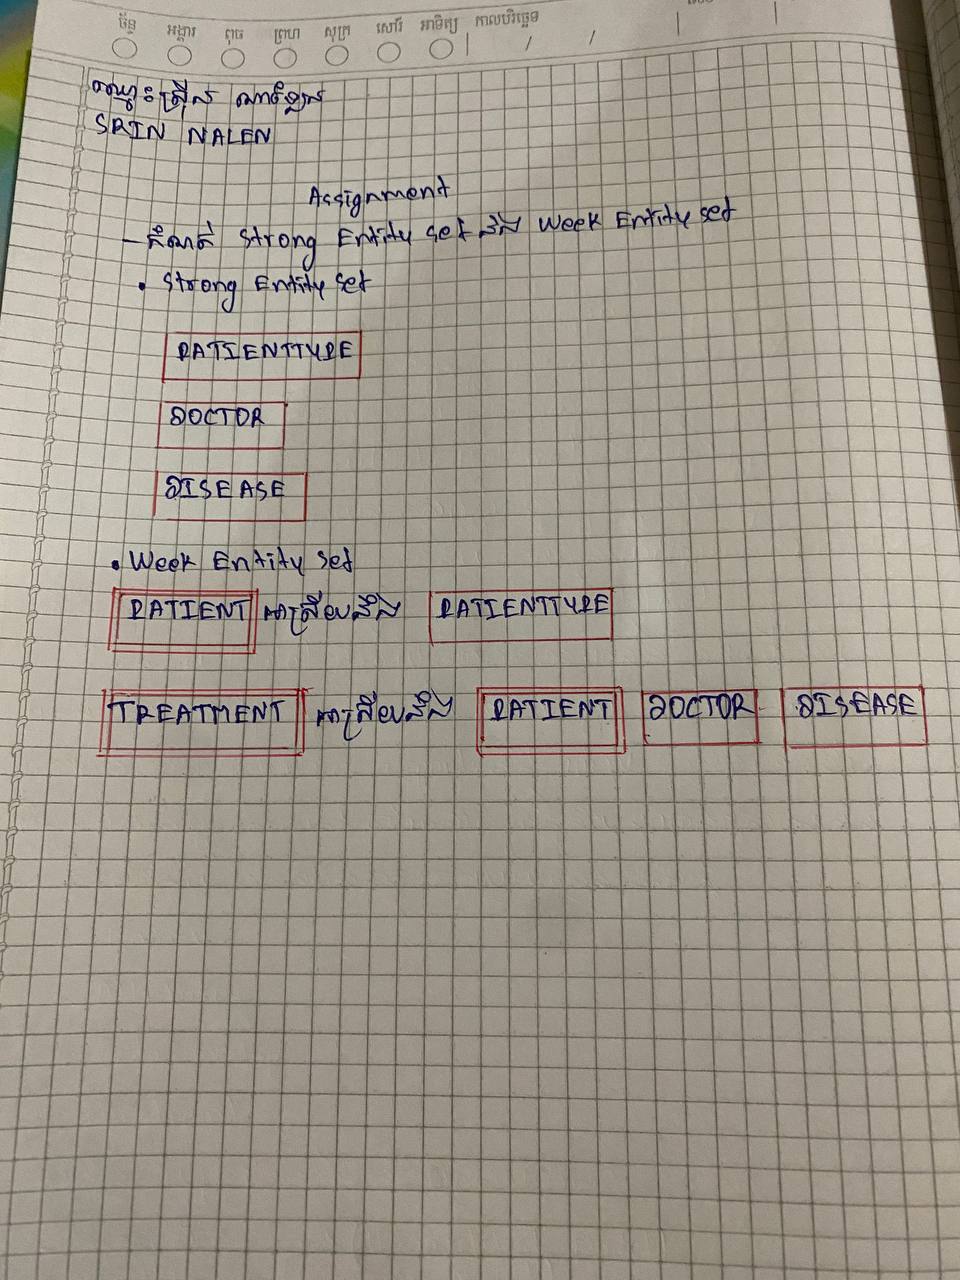 ច័ន្ទ អង្គារ ពុធ ព្រហ សុក្រ សៅរ៍ អាទិត្យ កាលបរិច្ឆេទ / /
ឈ្មោះ ស្រ៊ីន ណាឡែន
SRIN NALEN
Assignment
- កំណត់ Strong Entity set និង Week Entity set
• Strong Entity set
PATIENTTYPE
DOCTOR
DISEASE
• Week Entity set
PATIENT អាស្រ័យនឹង PATIENTTYPE
TREATMENT អាស្រ័យនឹង PATIENT DOCTOR DISEASE